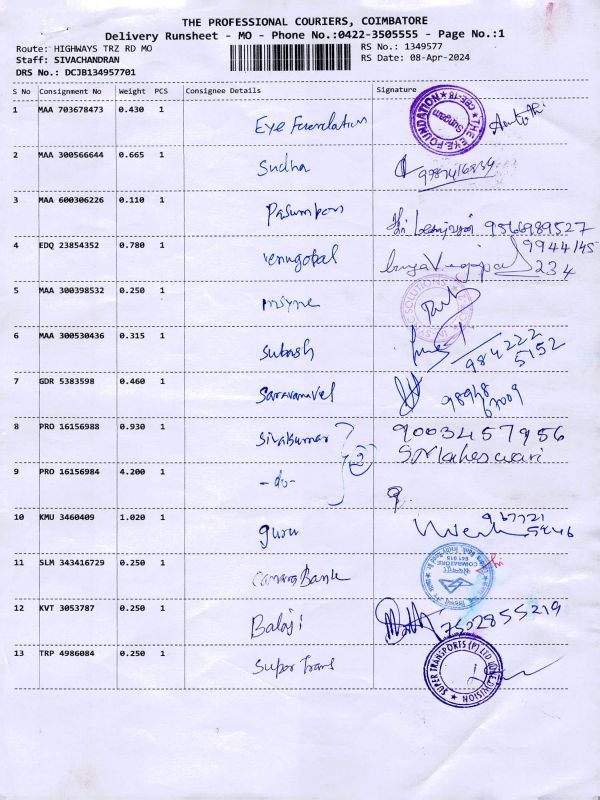 THE PROFESSIONAL COURIERS, COIMBATORE
Delivery Runsheet - MO - Phone No.:0422-3505555 - Page No.:1
Route: HIGHWAYS TRZ RD MO RS No.: 1349577
Staff: SIVACHANDRAN RS Date: 08-Apr-2024
DRS No.: DCJB134957701
S No Consignment No Weight PCS Consignee Details Signature
1 MAA 703678473 0.430 1 Eye Foundation THE EYE FOUNDATION CBE-18
2 MAA 300566644 0.665 1 Sudha
3 MAA 600306226 0.110 1 Pasumpon 9566989527
4 EDQ 23854352 0.780 1 venugopal 9944145
234
5 MAA 300398532 0.250 1 SOLUTIONS
6 MAA 300530436 0.315 1 Subash 984222
5152
7 GDR 5383598 0.460 1 Saravanavel 98948
8 PRO 16156988 0.930 1 Sivakumar 2 9003457956
S. Maheswari
9 PRO 16156984 4.200 1 -do-
10 KMU 3460409 1.020 1 guru
11 SLM 343416729 0.250 1 Canara Bank COIMBATORE
12 KVT 3053787 0.250 1 Balaji 7502855219
13 TRP 4986084 0.250 1 Super Trans SUPER TRANSPORTS (P) LTD